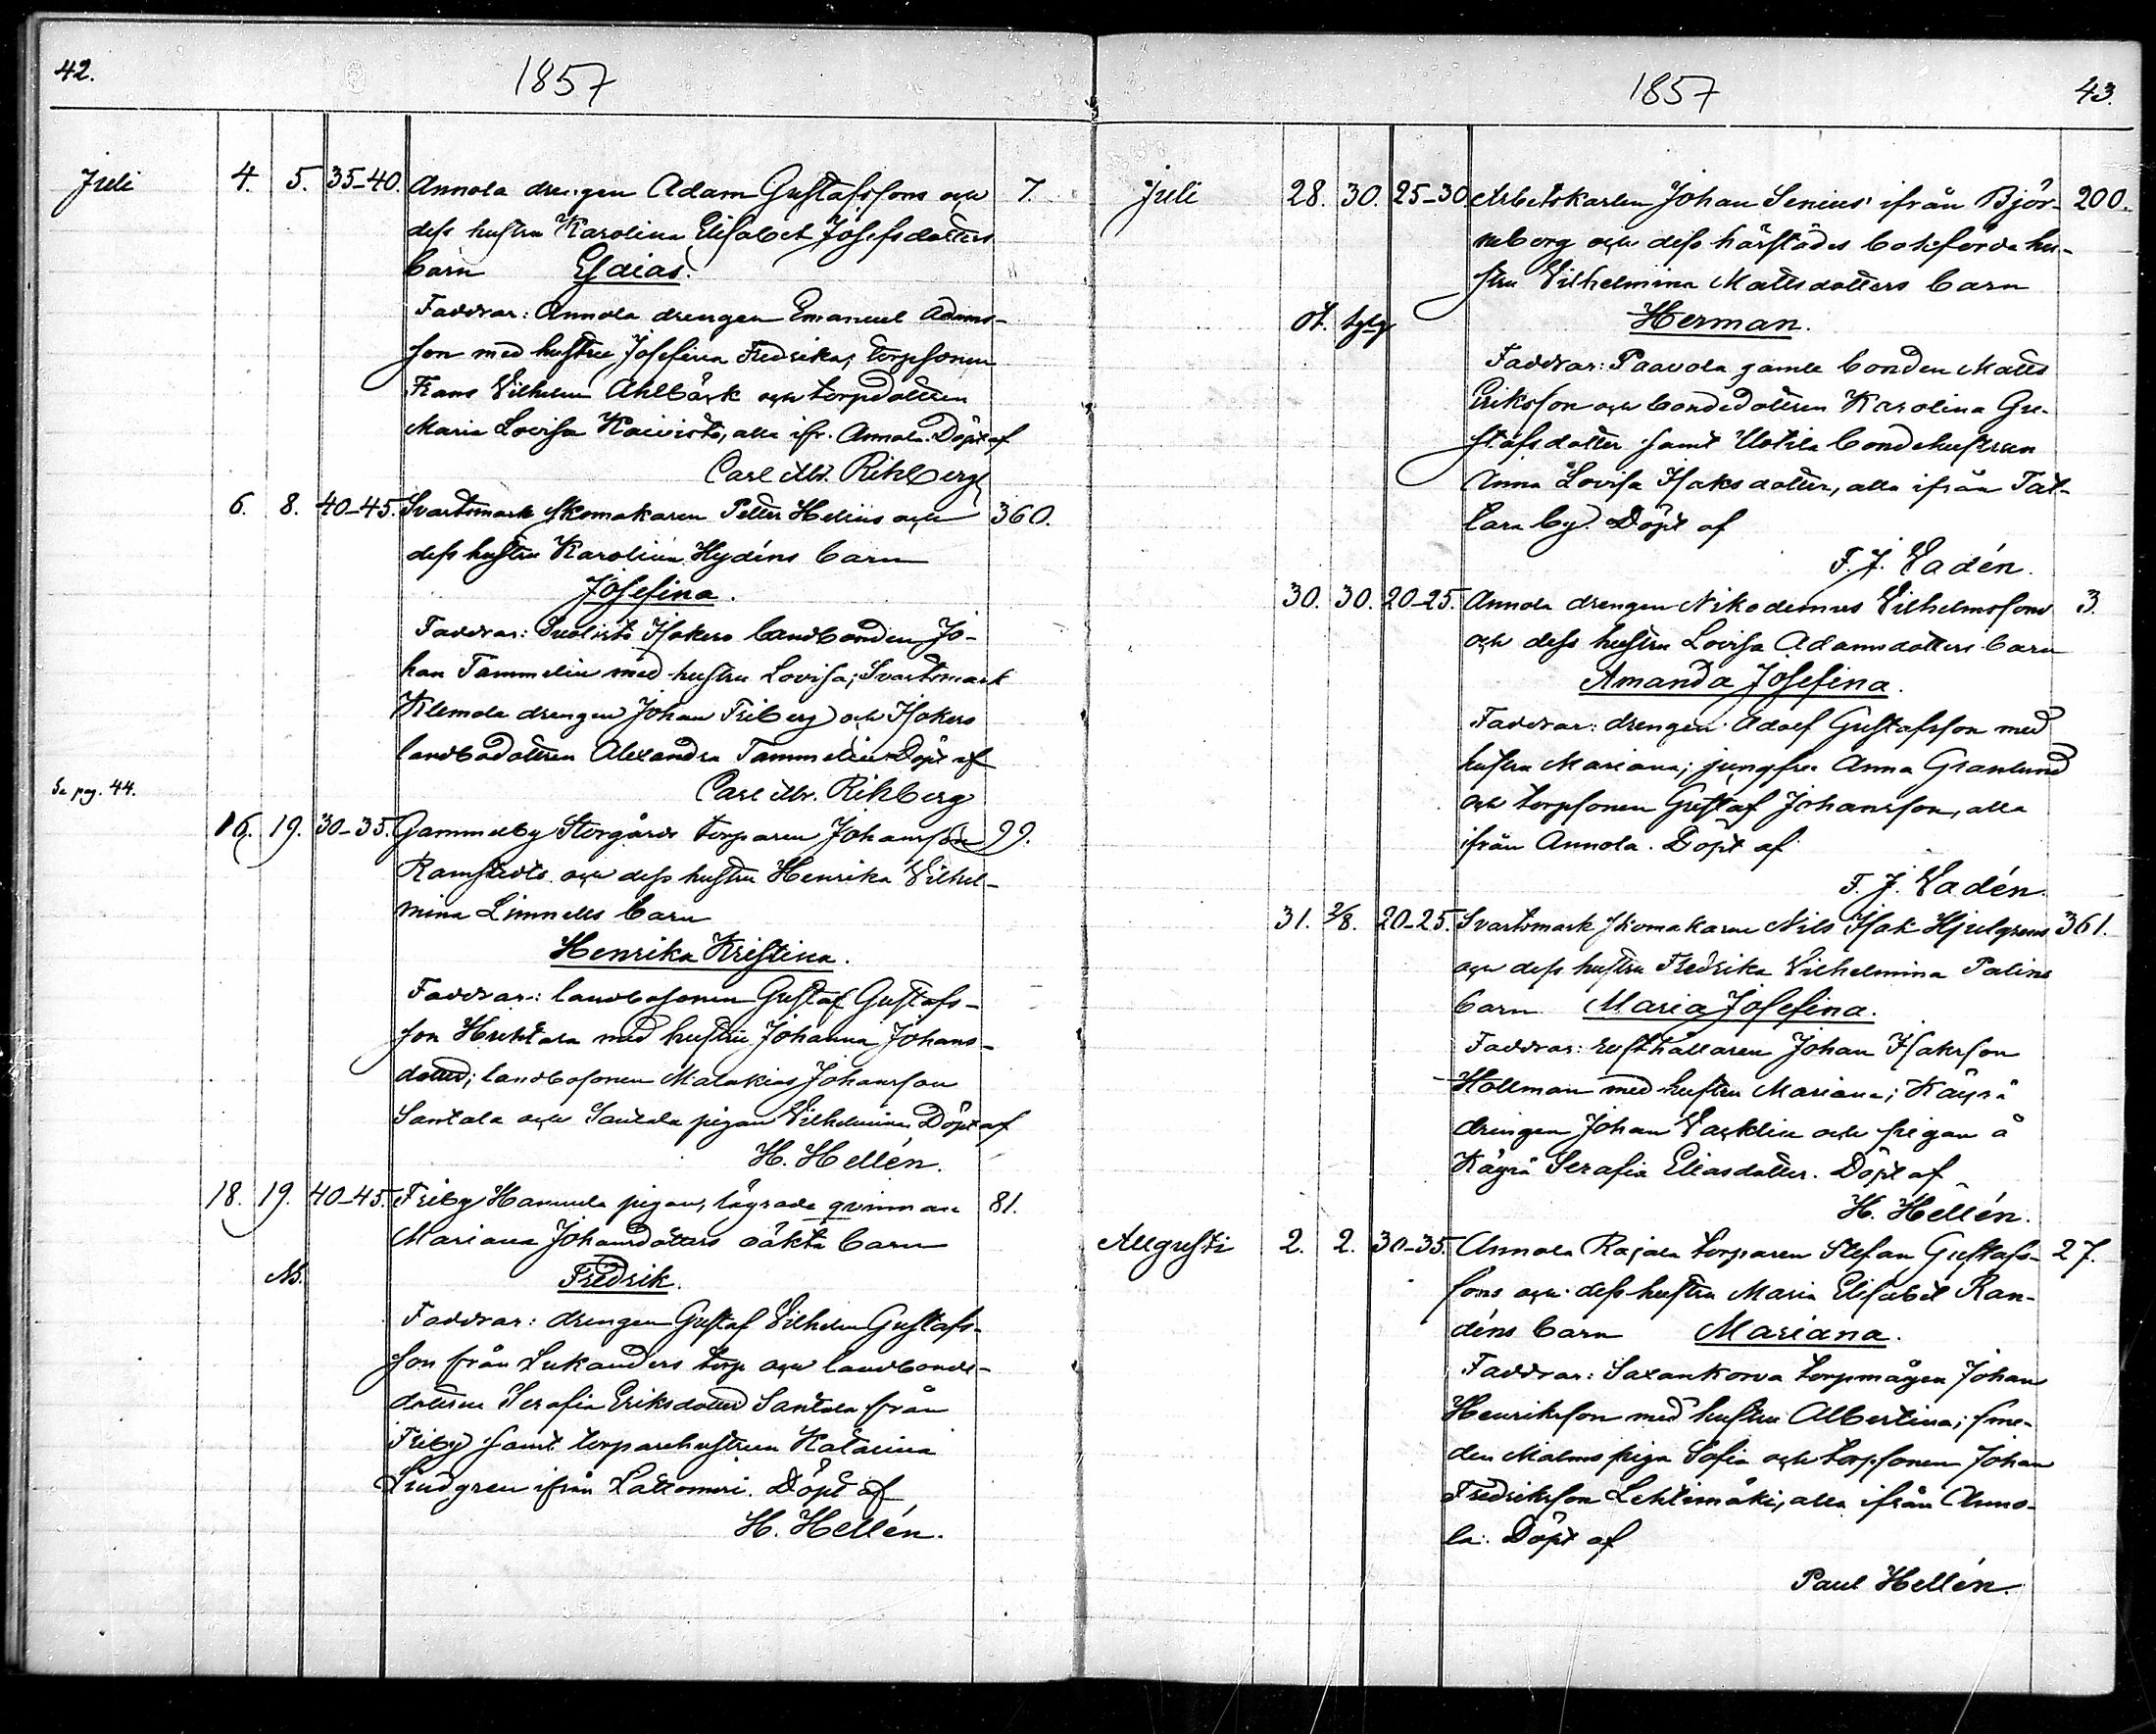 42.
1857
Juli 4. 5. 35-40. Annola drengen Adam Gustafssons och 7.
dess hustru Karolina Elisabet Josefsdotters
barn Esaias.
Faddrar: Annola drengen Emanuel Adams-
son med hustru Josefina Fredrika; torpsonen
Frans Vilhelm Ahlbäck och torpdottren
Maria Lovisa Koivisto, alla ifr. Annola. Döpt af
Carl Rihlberg
6. 8. 40-45. Svartsmark skomakaren Petter Helins och 360.
dess hustru Karolina Hydéns barn
Josefina.
Faddrar: Isakero landbonden Jo-
han Tammelin med hustru Lovisa; Svartsmark
Klemola drengen Johan Friberg och Isakero
landbodottren Alexandra Tammelin Döpt af
Se pag. 44.
Carl Rihlberg
16. 19. 30-35. Gammelby Storgårds torparen Johansson 99.
Ramstedts och dess hustru Henrika Vilhel-
mina Linnells barn
Henrika Kristina.
Faddrar: landbosonen Gustaf Gustafs-
son Huhtala med hustru Johanna Johans-
dotter; landbosonen Malakias Johansson
Santala och Santala pigan Vilhelmina Döpt af
H. Hellén.
18. 19. 40-45. Friby Hannula pigan, lägrade qvinnan 81.
Mariana Johansdotters oäkta barn
Fredrik.
Faddrar: drengen Gustaf Vilhelm Gustafs-
son från Lukanders torp och landbonde-
dottren Serafia Eriksdotter Santala från
Friby samt torparehustrun Katarina
Lindgren ifrån Lattomeri. Döpt af
H. Hellén.
1857
43.
Juli 28. 30. 25-30 Arbetskarlen Johan Senius' ifrån Björ- 200.
neborg och dess härstädes bokförda hu-
stru Vilhelmina Mattsdotters barn
Herman.
Faddrar: Paavola gamle bonden Matts
Eriksson och bondedottren Karolina Gu-
stafsdotter samt Uotila bondehustrun
Anna Lovisa Isaksdotter, alla ifrån Tat-
tara by. Döpt af
F. J. Vadén.
30. 30. 20-25. Annola drengen Nikodemus Vilhelmssons 3.
och dess hustru Lovisa Adamsdotters barn
Amanda Josefina.
Faddrar: drengen Adolf Gustafsson med
hustru Mariana; jungfru Anna Granlund
och torpsonen Gustaf Johansson, alla
ifrån Annola. Döpt af
F. J. Vadén.
31. 2/8. 20-25. Svartsmark skomakaren Nils Isak Hjulgrens 361.
och dess hustru Fredrika Vilhelmina Palins
barn Maria Josefina.
Faddrar: rusthållaren Johan Isaksson
Hollman med hustru Mariana; Käyrä
drengen Johan Vacklin och pigan å
Käyrä Serafia Eliasdotter. Döpt af
H. Hellén.
Augusti 2. 2. 30-35. Annola Rajala torparen Stefan Gustafs- 27.
sons och dess hustru Maria Elisabet Ran-
déns barn Mariana.
Faddrar: Saxankorva torpmågen Johan
Henriksson med hustru Albertina; sme-
den Malms piga Sofia och torpsonen Johan
Fredriksson Lehtimäki, alla ifrån Anno-
la. Döpt af
Paul Hellén.